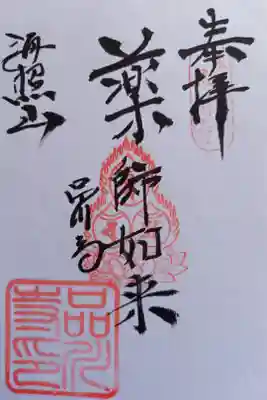 奉拝
薬師如来
海照山
品川寺
品川寺印